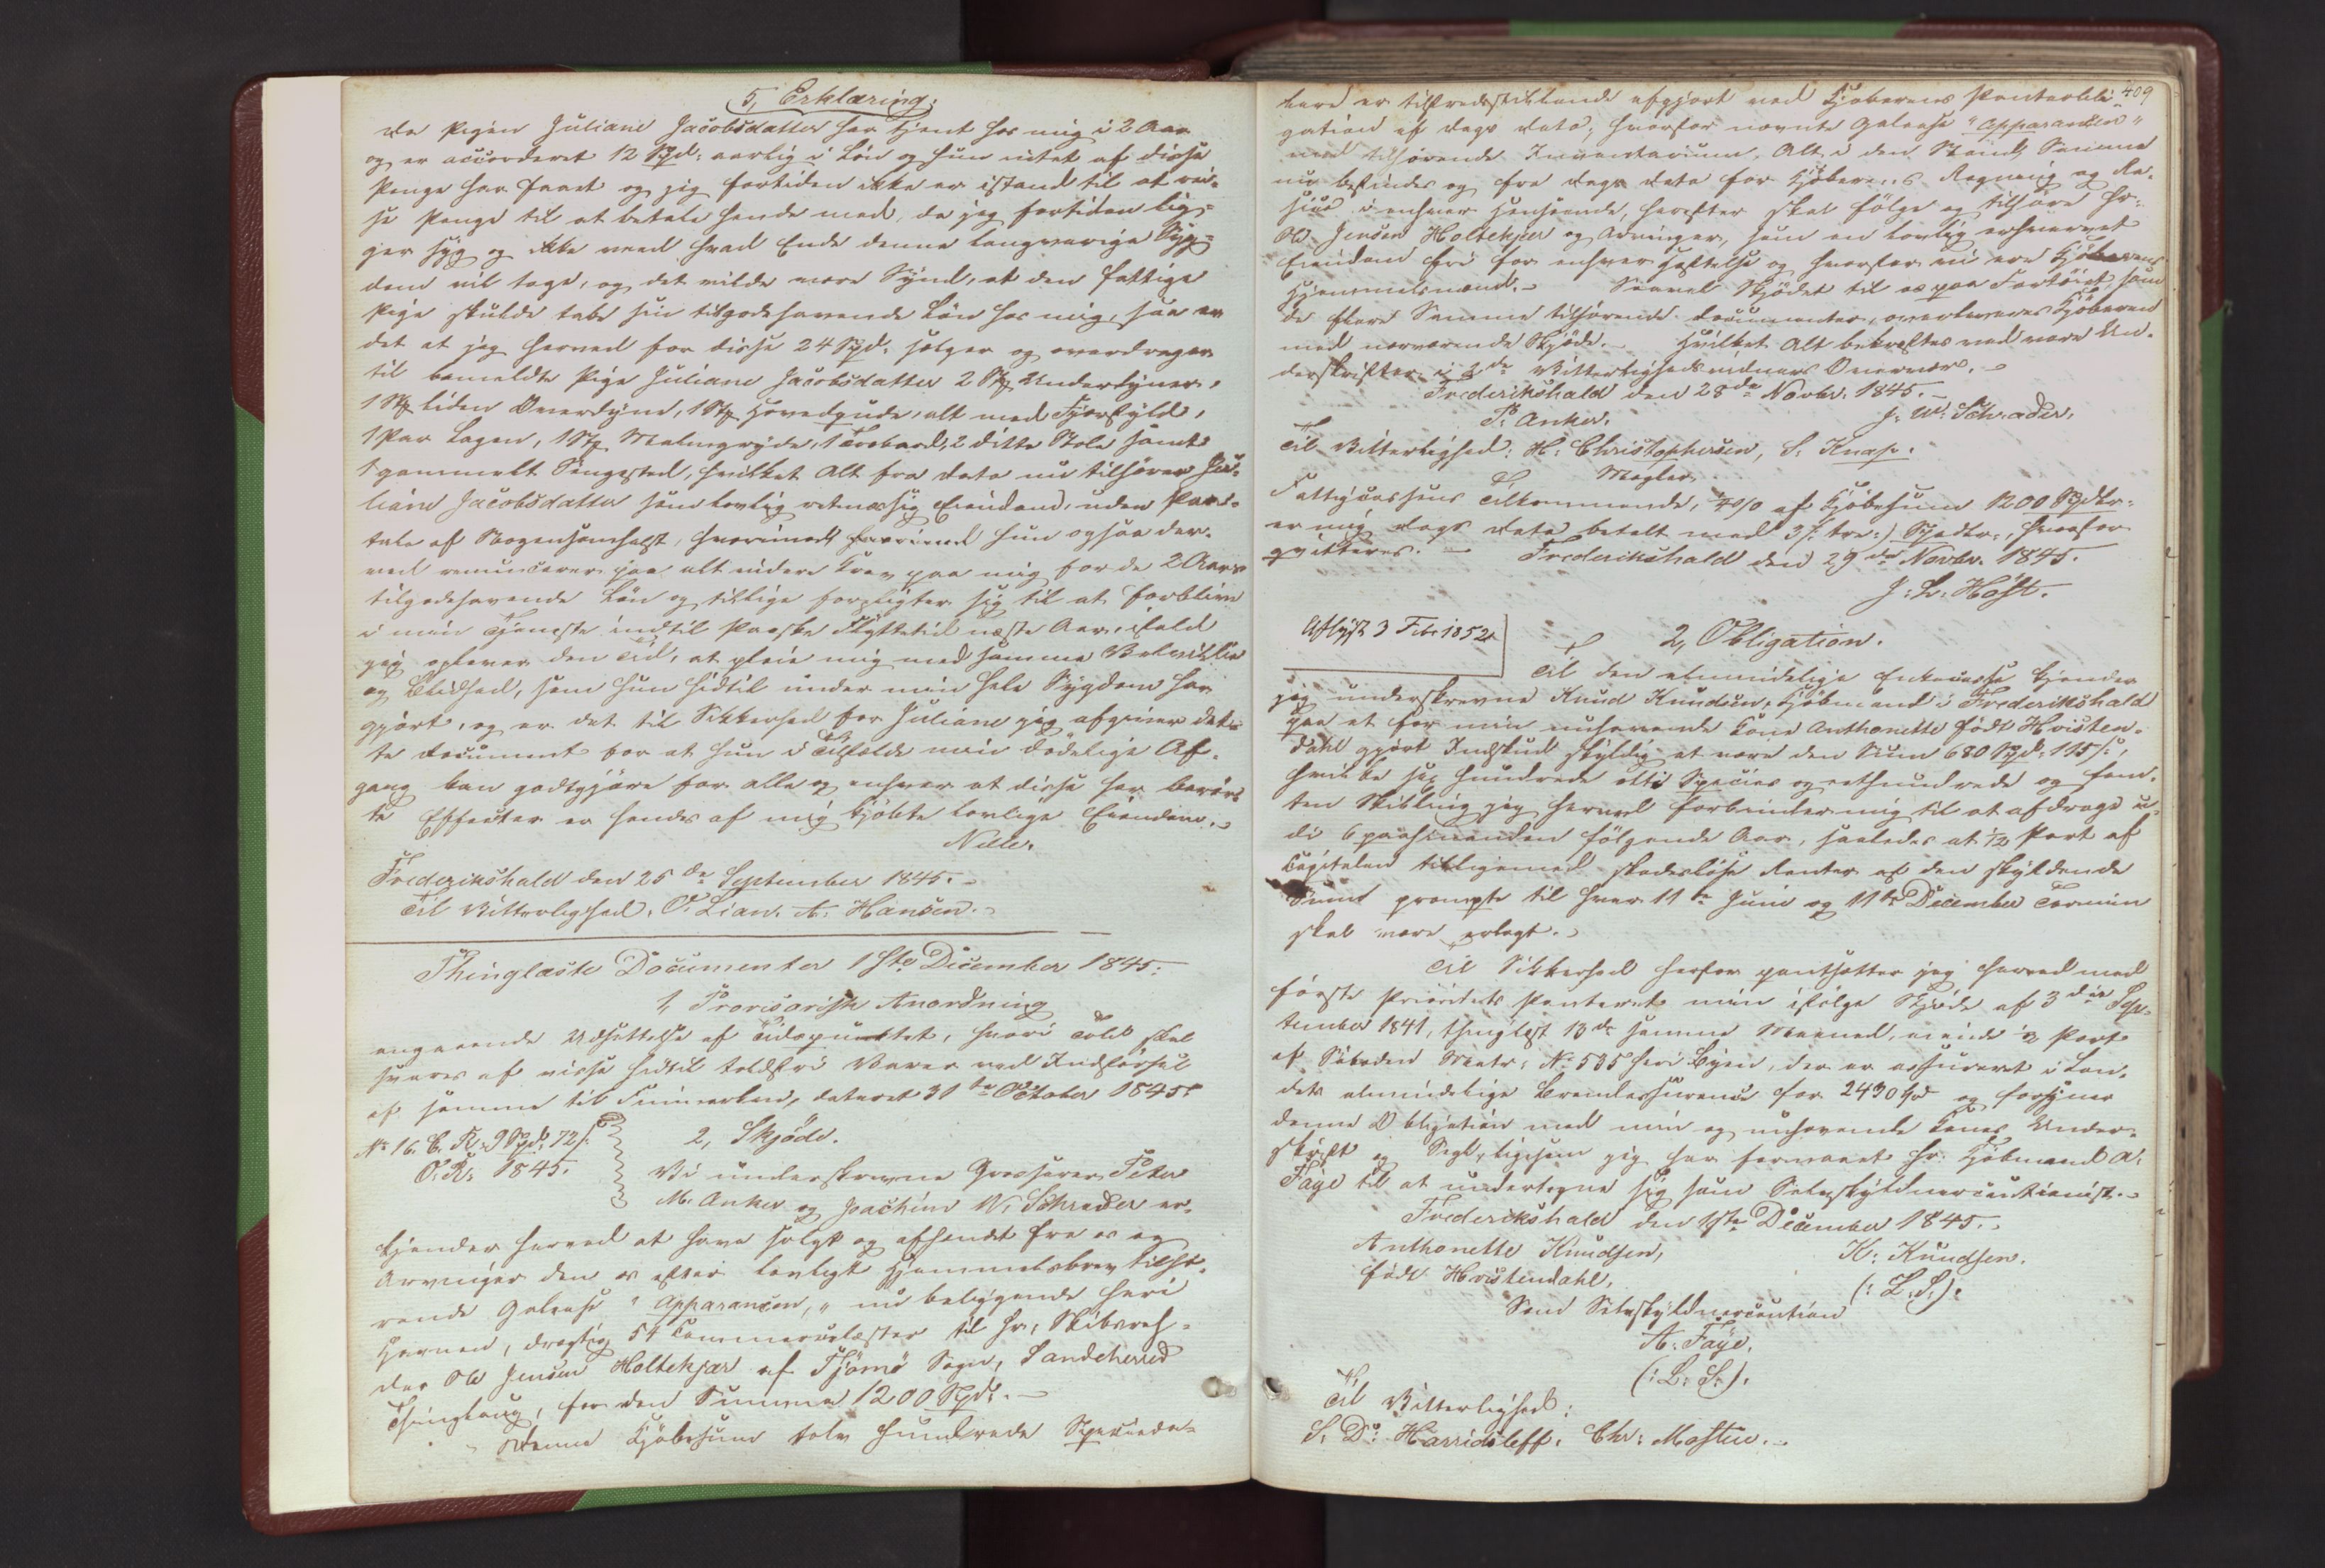 5, Erklæring.
Da Pigen Juliane Jacobsdatter har tjent hos mig i 2 Aar
og er accorderet 12 Spd: aarlig i Løn og hun intet af disse
Penge har faaet og jeg fortiden ikke er istand til at rei-
se Penge til at betale hende med, da jeg fortiden lig-
ger syg og ikke veed hvad Ende denne langvarige Syg-
dom vil tage, og det vilde være Synd, at den fattige
Pige skulde tabe sin tilgodehavende Løn hos mig, saa er
det at jeg herved for disse 24 Spd. sælger og overdrager
til bemeldte Pige Juliane Jacobsdatter 2 Stk Underdyner,
1 Stk liden Overdyne, 1 Stk Hovedpude, alt med Fjærfyld,
1 Par Lagen, 1 Stk Malmgryde, 1 Træbord, 2 ditto Stole samt
1 gammelt Sengested, hvilket Alt fra Dato nu tilhører Ju-
liane Jacobsdatter som lovlig retmæssig Eiendom, uden Paa-
tale af Nogensomhelst, hvorimod hvorimod hun ogsaa der-
ved renuncerer paa alt videre Krav paa mig for de 2 Aars
tilgodehavende Løn og tillige forpligter sig til at forblive
i min Tjeneste indtil Paaske Flyttetid næste Aar, ifald
jeg oplever den Tid, at pleie mig med samme Velvillie
og Blidhed, som hun hidtil under min hele Sygdom har
gjort, og er det til Sikkerhed for Juliane jeg afgiver det-
te Document for at hun i Tilfælde min dødelige Af-
gang kan godtgjøre for alle og enhver at disse her berør-
te Effecter er hendes af mig kjøbte lovlige Eiendom.
Fredrikshald den 25de September 1845.
Til Vitterlighed. O. Lian. A. Hansen.
Thinglæste Documenter 1ste December 1845:
1, Provisorisk Anordning
angaaende Udsættelse af Tidspunctet, hvori Told skal
svares af visse hidtil toldfri Varer ved Indførsel
af samme til Finmarken, dateret 31te October 1845.
No 16. C. R: 9 Spd: 72 s:
O: R: 1845.
2, Skjøde.
Vi underskrevne Grosserer Peter
M. Anker og Joachim W. Schrader er-
kjender herved at have solgt og afhændet fra os og
Arvinger den os efter lovligt Hjemmelsbrev tilhø-
rende Galease "Apparancen," nu beliggende heri
Havnen, drægtig 54 Commercelæster til Hr. Skibsreh-
der Ole Jensen Holtekjær af Tjømø Sogn, Sandeherred
Thinglaug, for den Summa 1200 Spd.
Denne Kjøbesum tolv Hundrede Specieda-
409
lere er tilfredsstillende afgjort ved Kjøberens Panteobli-
gation af Dags Dato, hvorfor nævnte Galease "Apparancen"
med tilhørende Inventarium, Alt i den Stand Samme
nu befindes og fra Dags Dato for Kjøberens Regning og Ri-
sico i enhver Henseende, herefter skal følge og tilhøre Hr.
Ole Jensen Holtekjær og Arvinger, som en lovlig erhvervet
Eiendom fri for enhver Heftelse og hvorfor vi ere Kjøberens
Hjemmelsmænd. Saavel Skjødet til os paa Fartøiet, som
de flere Samme tilhørende Documenter, overleveres Kjøberen
med nærværende Skjøde. Hvilket Alt bekræftes ved vore Un-
derskrifter i 2de Vitterlighedsvidners Overvær.
Frederikshald den 28de Novbr. 1845.
P. Anker. J: W: Schrader.
Til Vitterlighed: H: Christophersen, S. Knap.
Mægler.
Fattigcassens Tilkommende, 1/4 0/0 af Kjøbesum 1200 Spdlr:
er mig Dags Dato betalt med 3 /: tre :/ Spdlr:, hvorfor
qvitteres. Frederikshald den 29de Novbr. 1845.
J: L: Høst.
Aflyst 3 Febr 1852
2, Obligation.
Til den almindelige Enkecasse kjender
jeg underskrevne Knud Knudsen, Kjøbmand i Frederikshald
paa et for min iehavende Kone Anthonette født Hvisten-
dahl gjort Indskud skyldig at være den Sum 680 Spd: 115 s:,
hvilke sex hundrede otti Species og eethundrede og fem-
ten Skilling jeg herved forbinder mig til at afdrage i
de 6 paahinanden følgende Aar, saaledes at 1/12 Part af
Capitalen tilligemed skadesløse Renter af den skyldende
Sum prompte til hver 11te Juni og 11te December Termin
skal være erlagt.
Til Sikkerhed herfor pantsætter jeg herved med
første Prioritets Panteret min ifølge Skjøde af 3die Sep-
tember 1841, thinglæst 13de samme Maaned, eiende 1/2 Part
af Søboden Matr: No 535 heri Byen, der er assureret i Lan-
dets almindelige Brandassurance for 2430 Spd og forsyner
denne Obligation med min og iehavende Kones Under-
skrift og Segl, ligesom jeg har formaaet Hr. Kjøbmand A:
Faye til at undertegne sig som Selvskyldnercautionist.
Frederikshald den 1ste December 1845.
Anthonette Knudsen, K: Knudsen.
født Hvistendahl. (: L. S. :)
Som Selvskyldnercaution
A. Faye.
(: L: S: ).
Til Vitterlighed:
S. D: Harridsleff. Chr: Mosten.